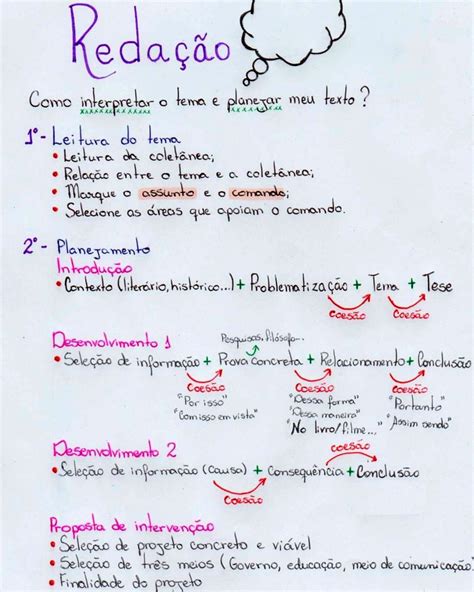 Redação
Como interpretar o tema e planejar meu texto?
1º- Leitura do tema
• Leitura da coletânea;
• Relação entre o tema e a coletânea;
• Marque o assunto e o comando;
• Selecione as áreas que apoiam o comando.
2º- Planejamento
Introdução
• Contexto (literário, histórico...) + Problematização + Tema + Tese
coesão coesão
Desenvolvimento 1
Pesquisas, filósofo...
• Seleção de informação + Prova Concreta + Relacionamento + Conclusão
coesão coesão coesão
"Por isso" "Dessa forma" "Portanto"
"Com isso em vista" "Dessa maneira" "Assim sendo"
"No livro/filme..."
Desenvolvimento 2
coesão
• Seleção de informação (causa) + Consequência + Conclusão
coesão
Proposta de intervenção
• Seleção de projeto concreto e viável
• Seleção de três meios (Governo, educação, meio de comunicação)
• Finalidade do projeto